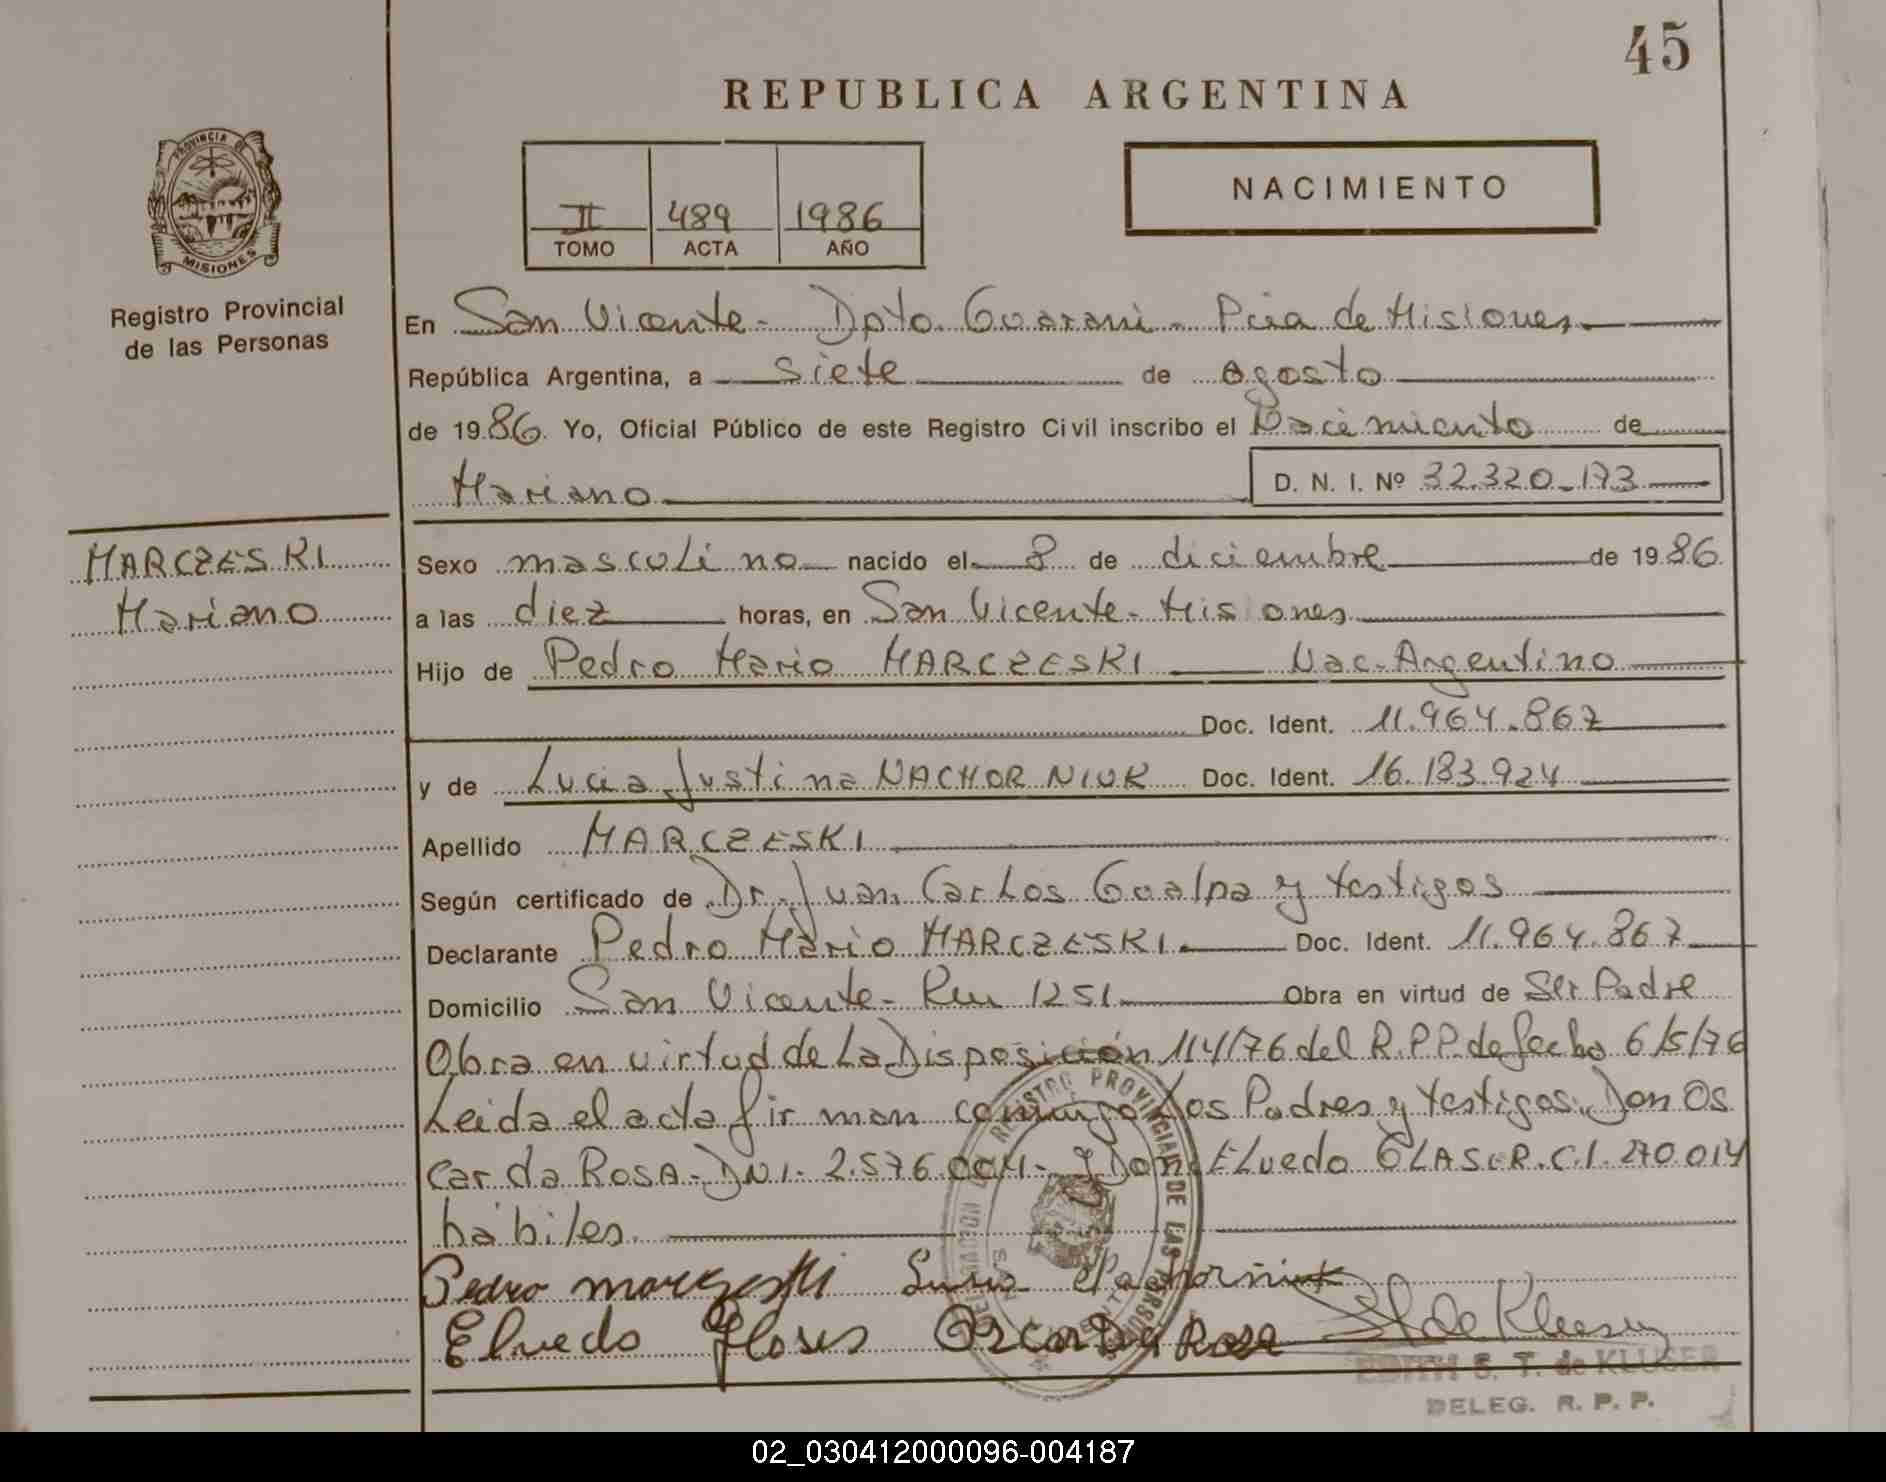 45
REPUBLICA ARGENTINA
PROVINCIA DE
MISIONES
Registro Provincial
de las Personas
II 489 1986
TOMO ACTA AÑO
NACIMIENTO
En San Vicente - Dpto. Guarani - Pcia de Misiones
República Argentina, a siete de agosto
de 1986. Yo, Oficial Público de este Registro Civil inscribo el Nacimiento de
Mariano D. N. I. Nº 32.320.173
MARCZESKI
Mariano
Sexo masculino nacido el 8 de diciembre de 1986
a las diez horas, en San Vicente - Misiones
Hijo de Pedro Mario MARCZESKI Nac. Argentino
Doc. Ident. 11.964.867
y de Lucia Justina NACHORNIUK Doc. Ident. 16.183.924
Apellido MARCZESKI
Según certificado de Dr. Juan Carlos Gualpa y testigos
Declarante Pedro Mario MARCZESKI Doc. Ident. 11.964.867
Domicilio San Vicente - Km 1251 Obra en virtud de Ser Padre
Obra en virtud de La Disposición 114/76 del R.P.P. de fecha 6/5/76
Leida el acta firman conmigo Los Padres y testigos: Don Os
car da ROSA - DNI - 2.576.004 - y Don ELvedo GLASER. C.I. 270.014
habiles.
Pedro marczeski
Elvedo Oscar Da Rosa
EDITH S. T. de KLUSER
DELEG. R. P. P.
02_030412000096-004187